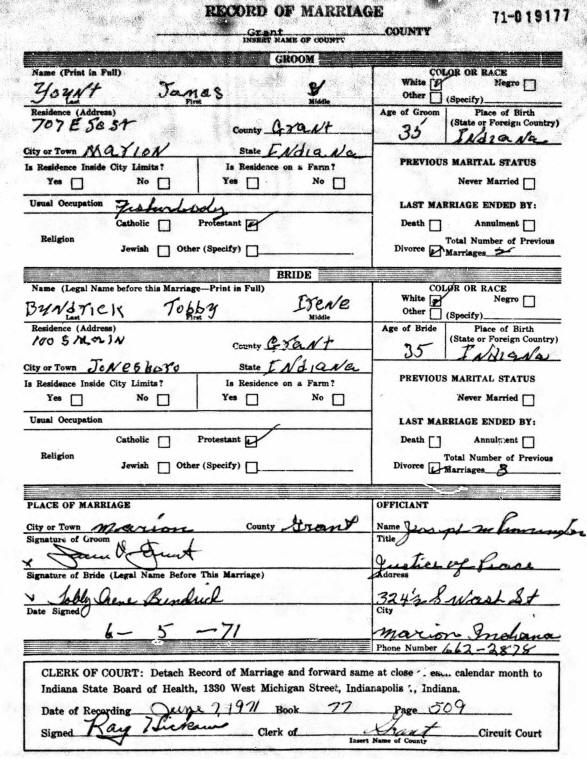 RECORD OF MARRIAGE
71-019177
Grant COUNTY
INSERT NAME OF COUNTY
GROOM
Name (Print in Full)
Yount James
Last First Middle
COLOR OR RACE
White Negro
Other (Specify)
Residence (Address)
707 E
County Grant
Age of Groom 35
Place of Birth
(State or Foreign Country)
Indiana
City or Town Marion State Indiana
Is Residence Inside City Limits? Is Residence on a Farm?
Yes No Yes No
PREVIOUS MARITAL STATUS
Never Married
Usual Occupation Fisherbody
LAST MARRIAGE ENDED BY:
Religion
Catholic Protestant
Jewish Other (Specify)
Death Annulment
Divorce Total Number of Previous
Marriages
BRIDE
Name (Legal Name before this Marriage—Print in Full)
Byndrick Tobby Irene
Last First Middle
COLOR OR RACE
White Negro
Other (Specify)
Residence (Address)
100 S Main
County Grant
Age of Bride 35
Place of Birth
(State or Foreign Country)
Indiana
City or Town Jonesboro State Indiana
Is Residence Inside City Limits? Is Residence on a Farm?
Yes No Yes No
PREVIOUS MARITAL STATUS
Never Married
Usual Occupation
LAST MARRIAGE ENDED BY:
Religion
Catholic Protestant
Jewish Other (Specify)
Death Annulment
Divorce Total Number of Previous
Marriages 3
PLACE OF MARRIAGE
City or Town Marion County Grant
Signature of Groom
x
Signature of Bride (Legal Name Before This Marriage)
Tobby Irene Bendrick
Date Signed
6-5-71
OFFICIANT
Name Joseph M
Title
Justice of Peace
Address
324½ S Wash St
City
Marion Indiana
Phone Number 662-2878
CLERK OF COURT: Detach Record of Marriage and forward same at close each calendar month to
Indiana State Board of Health, 1330 West Michigan Street, Indianapolis, Indiana.
Date of Recording June 7 1971 Book 77 Page 509
Signed Ray Clerk of Grant Circuit Court
Insert Name of County